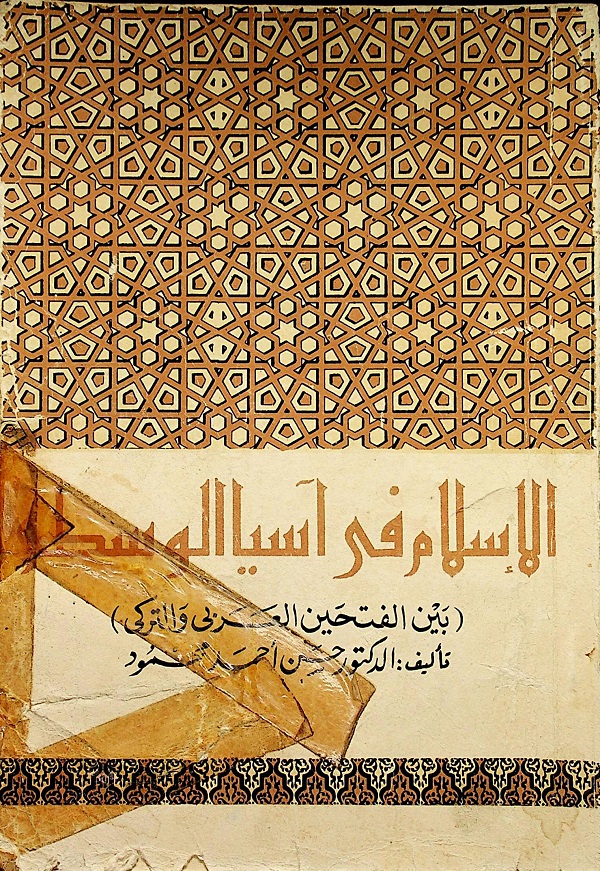 الإسلام فى آسيا الوسطى
(بين الفتحين العربى والتركى)
تأليف: الدكتور حسن أحمد محمود